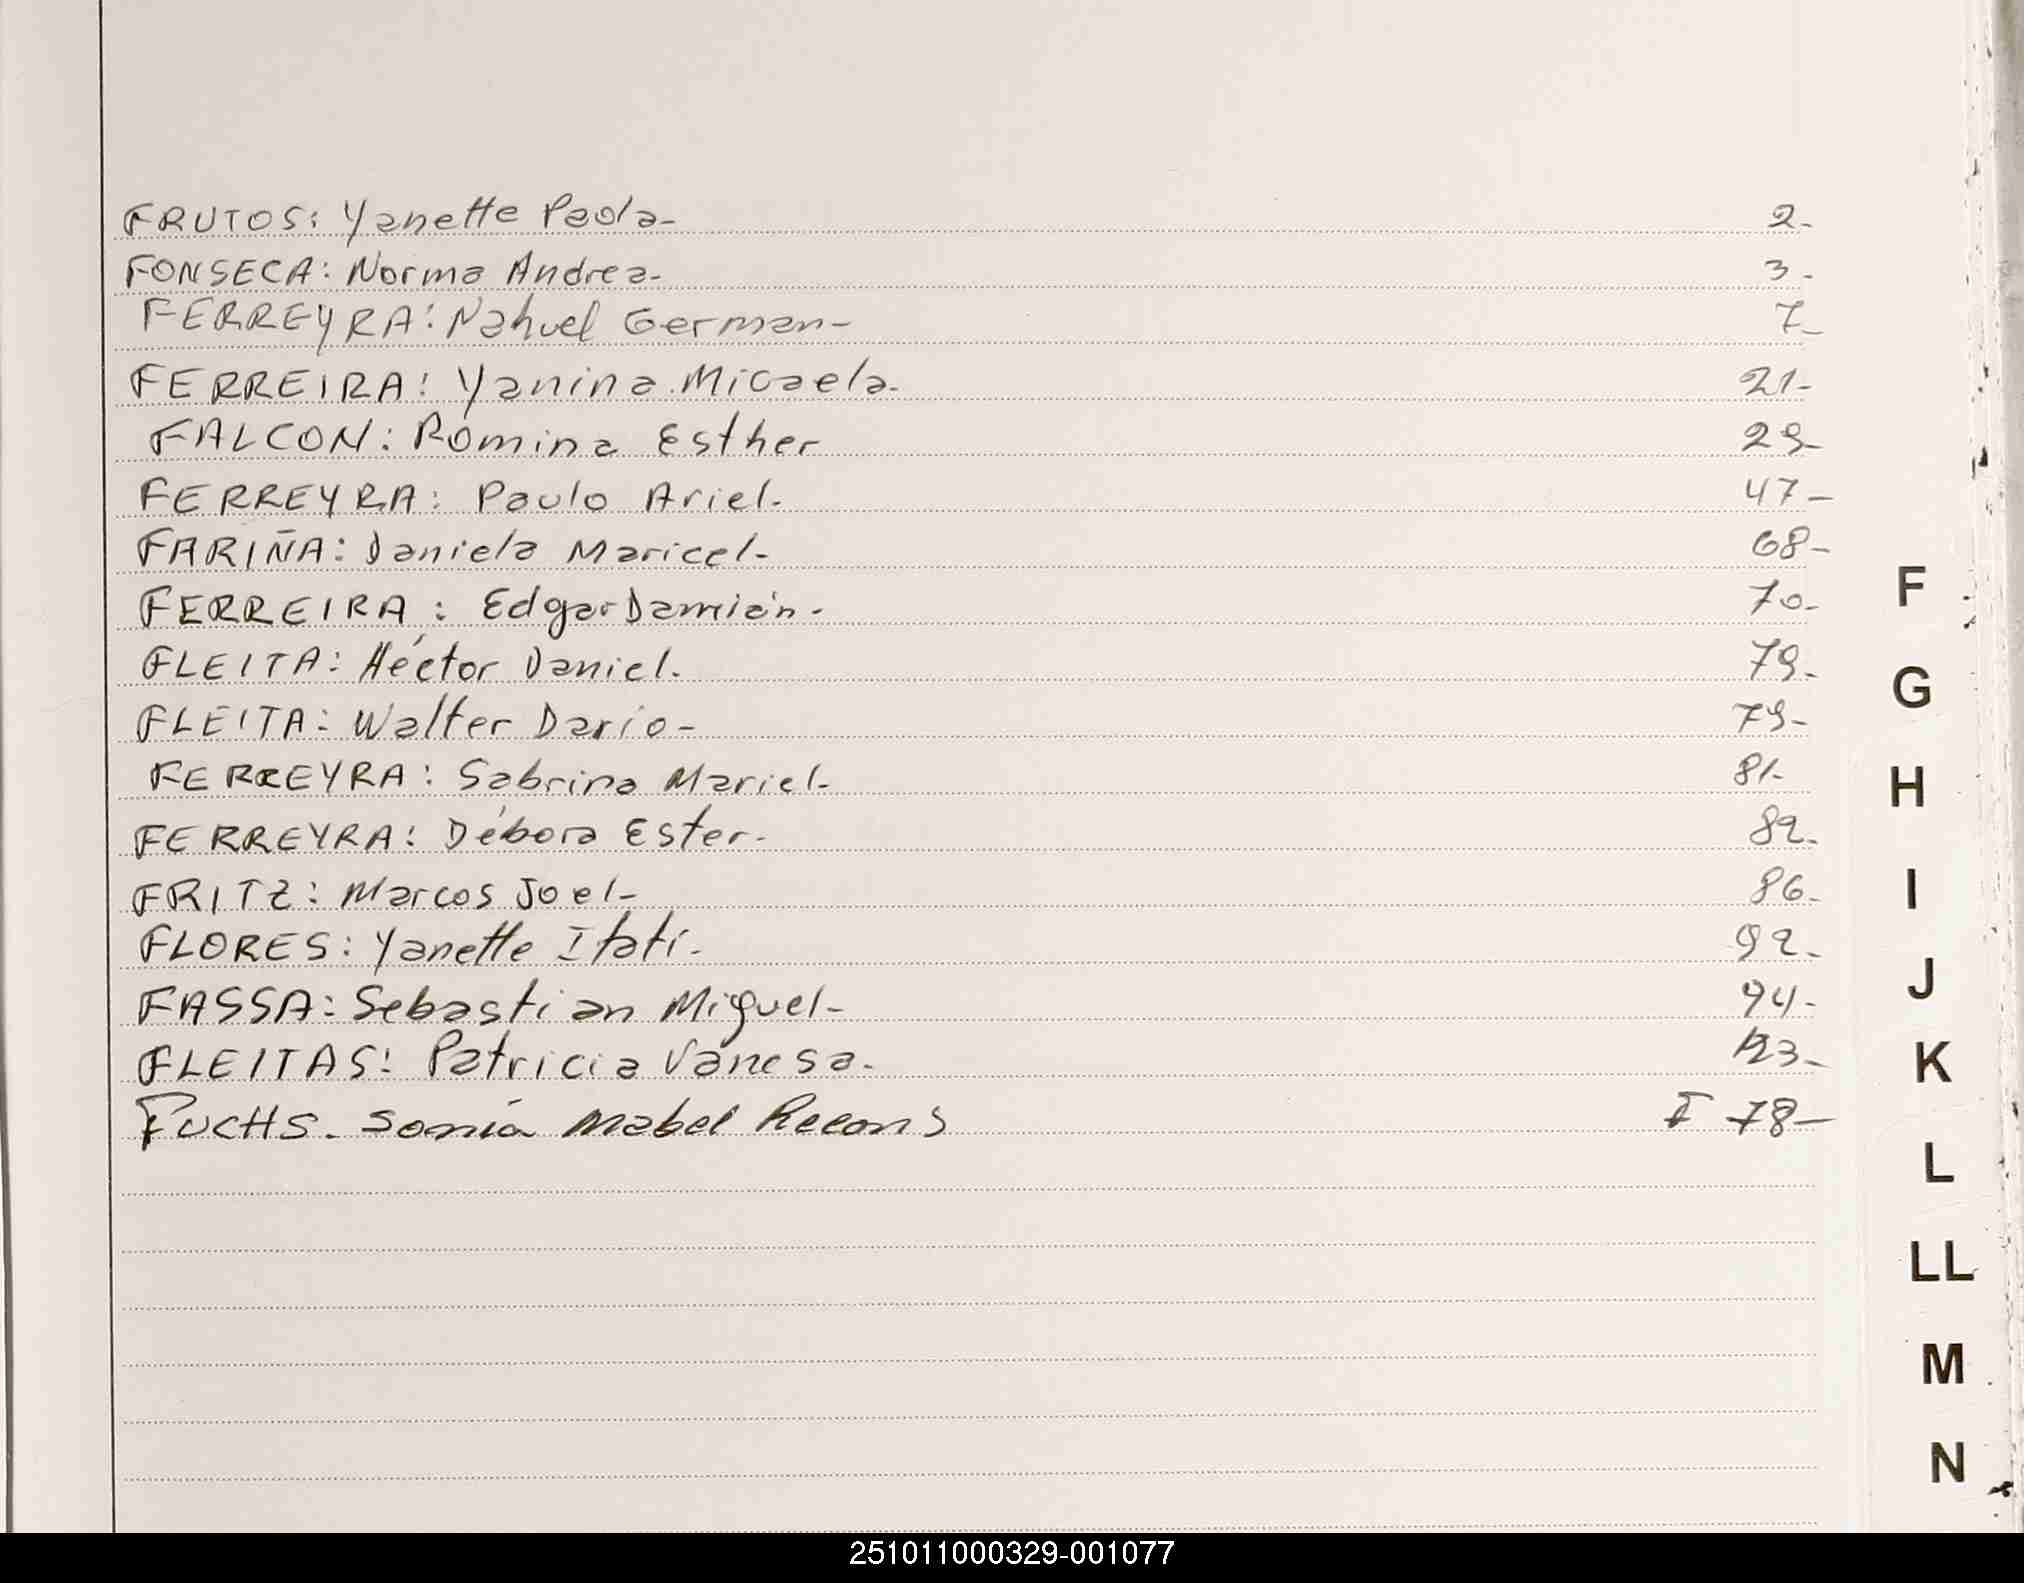 FRUTOS: Yanette Paola- 2-
FONSECA: Norma Andrea- 3-
FERREYRA: Nahuel German- 7-
FERREIRA: Yanina Micaela- 21-
FALCON: Romina Esther 29-
FERREYRA: Paulo Ariel- 47-
FARIÑA: Daniela Maricel- 68-
FERREIRA: Edgar Damián- 70-
FLEITA: Héctor Daniel- 79-
FLEITA: Walter Dario- 79-
FERREYRA: Sabrina Mariel- 81-
FERREYRA: Débora Ester- 82-
FRITZ: Marcos Joel- 86-
FLORES: Yanette Itatí- 92-
FASSA: Sebastian Miguel- 94-
FLEITAS: Patricia Vanesa- 123-
FUCHS- Sonia Mabel I 78-
F
G
H
I
J
K
L
LL
M
N
251011000329-001077